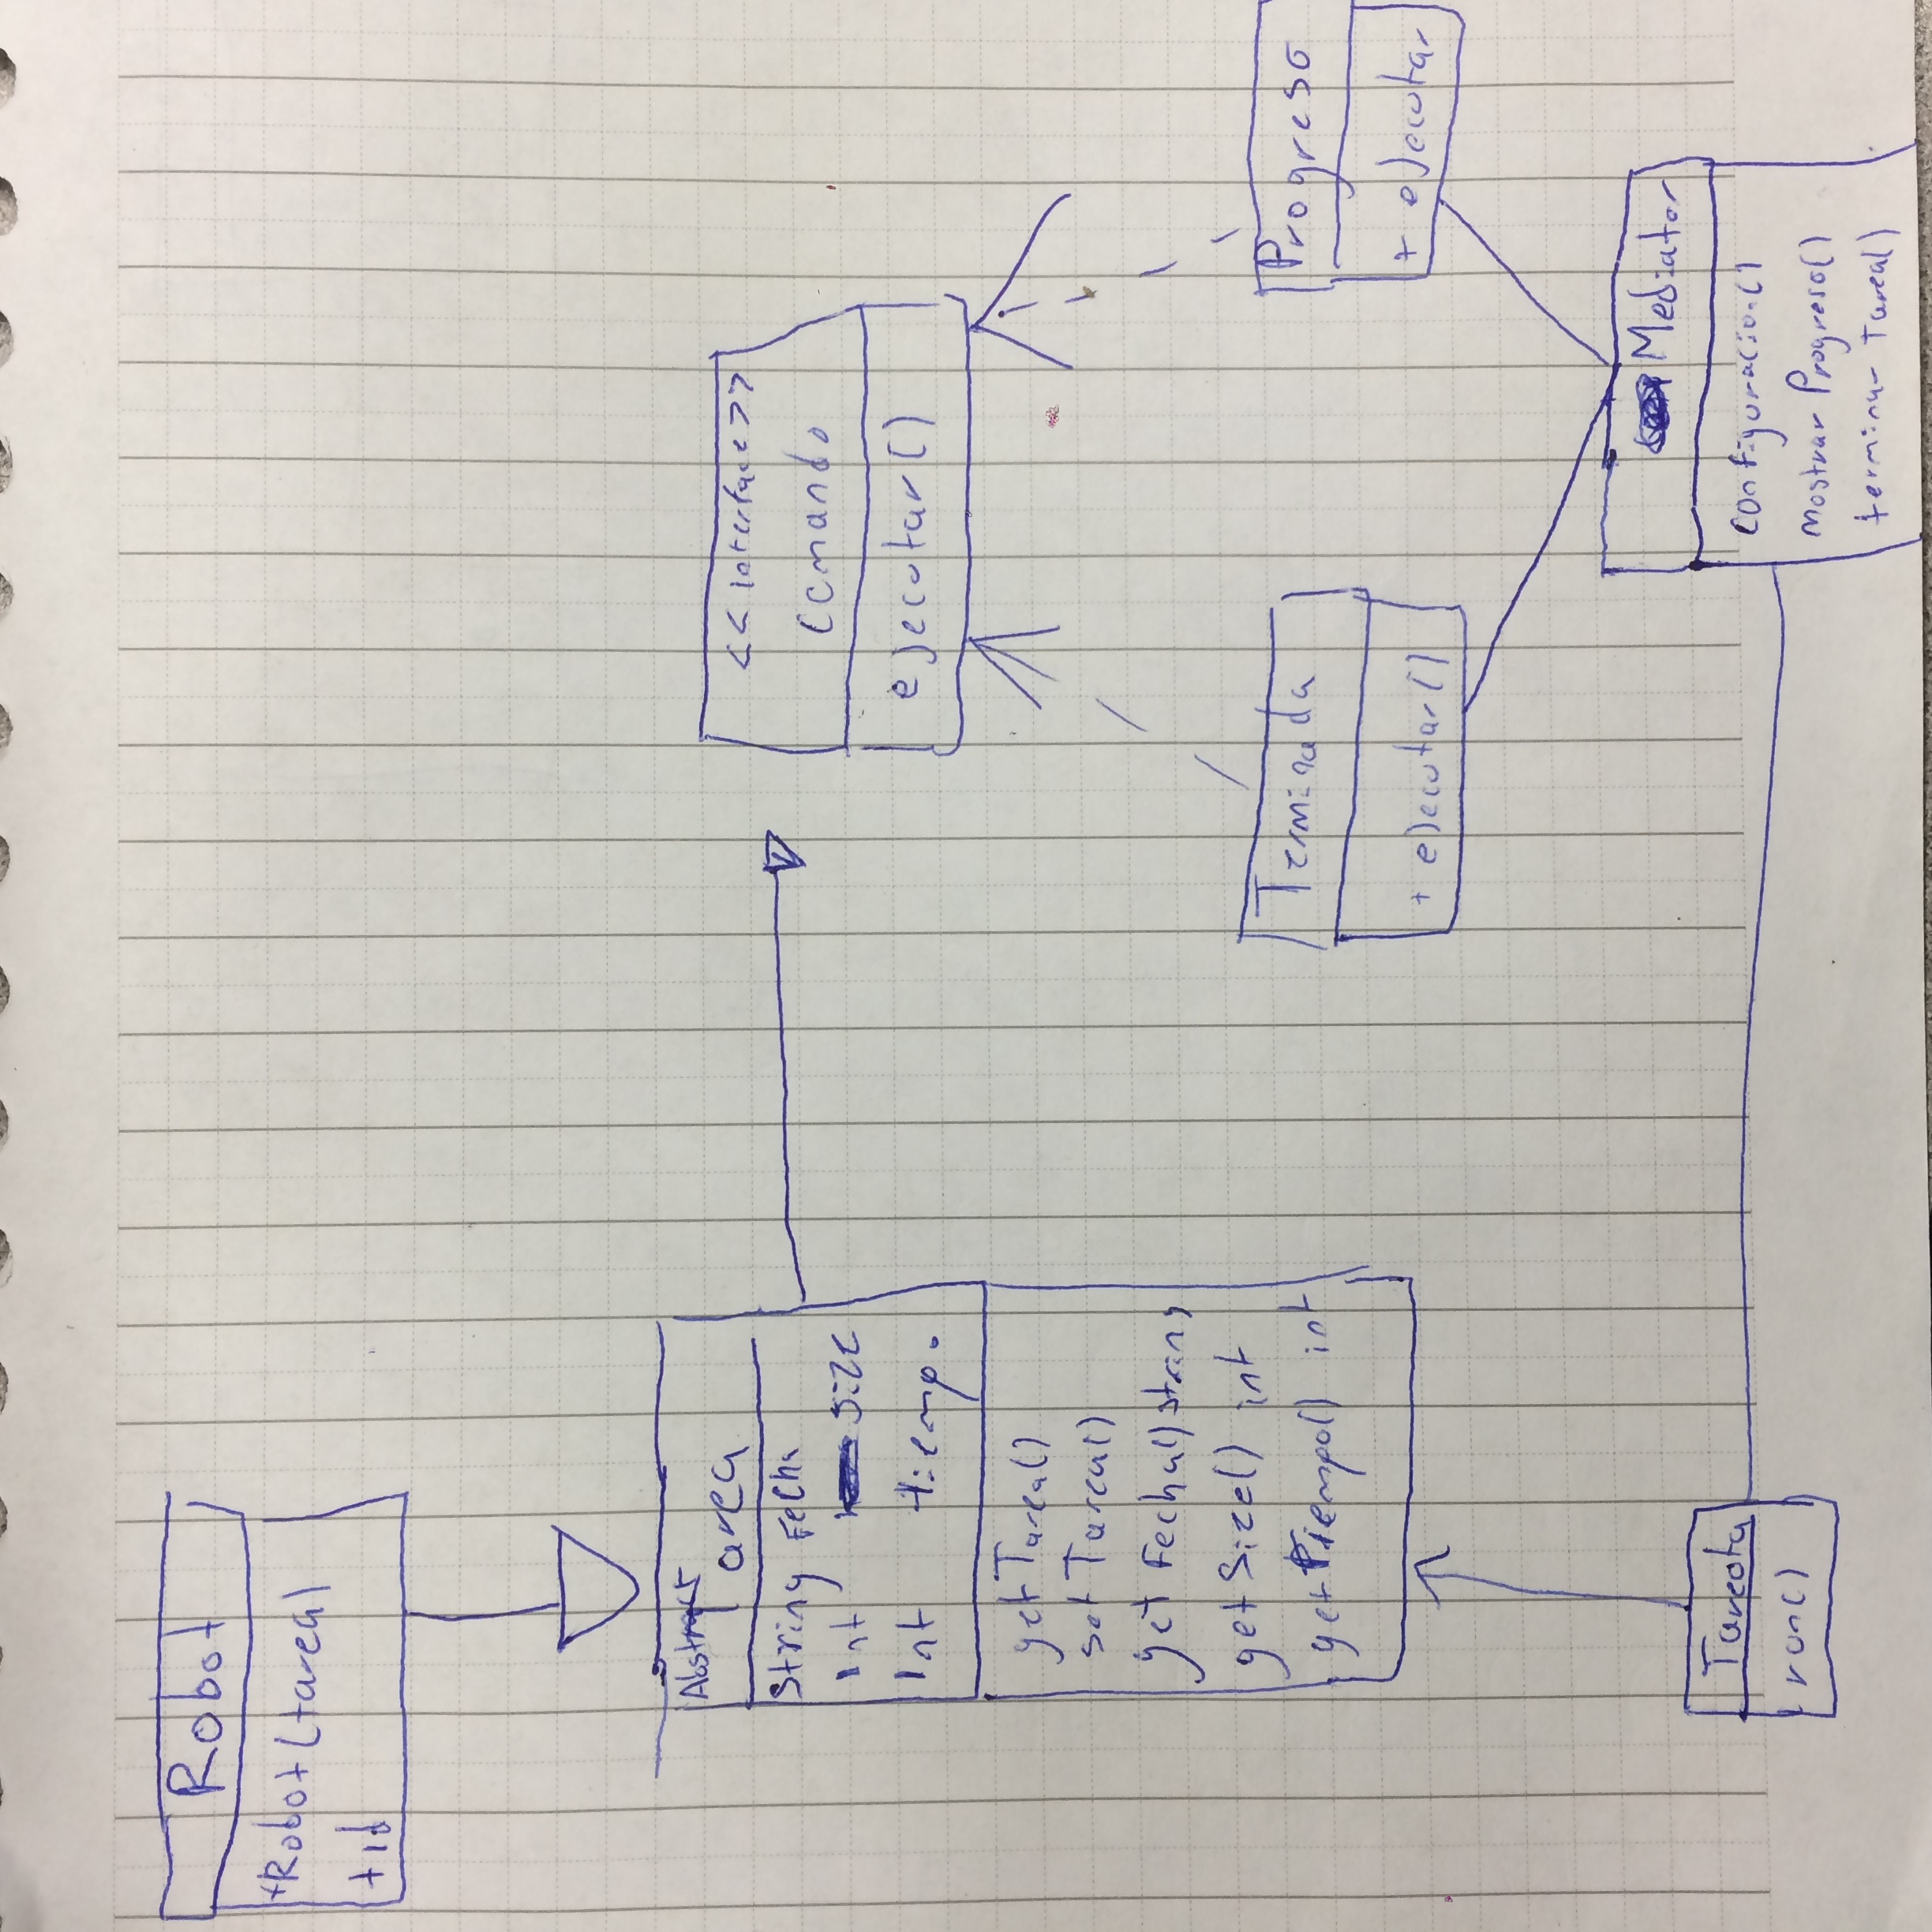 Robot
+Robot(tarea)
+id
Abstract
Tarea
String Fecha
Int size
Int tiempo
getTarea()
setTarea()
get Fecha() string
getSize() int
getTiempo() int
Tareota
run()
<<interface>>
Comando
ejecutar()
Terminada
+ ejecutar()
Progreso
+ ejecutar
Mediator
configuracion()
mostrar Progreso()
terminar Tarea()